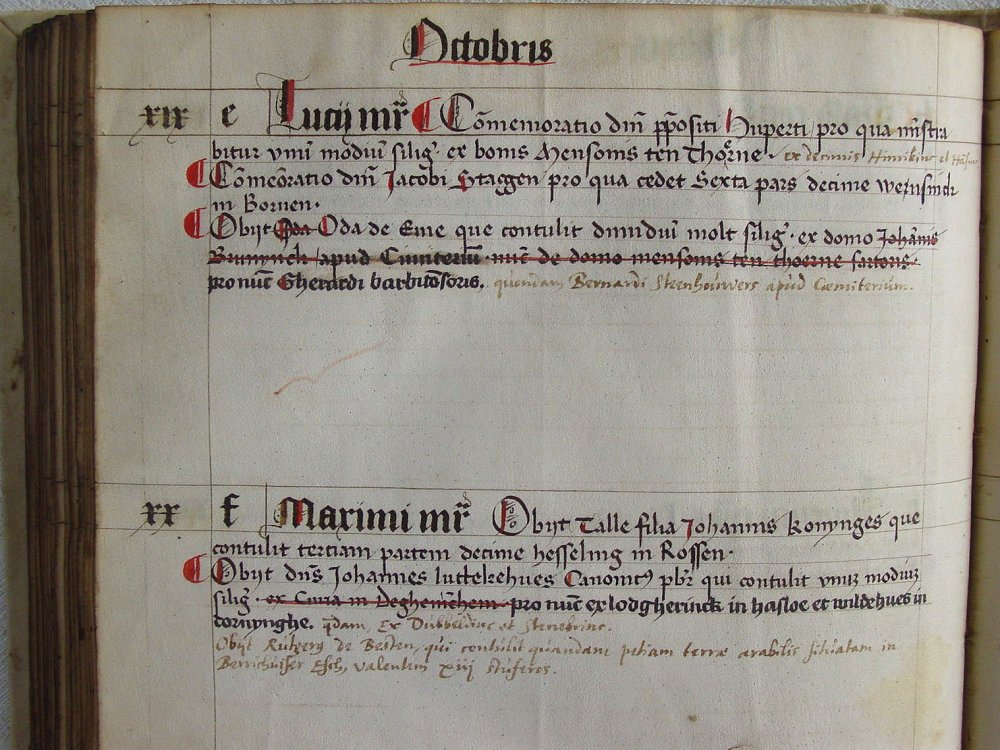 Octobris
xix e Lucij mr̄ Cōmemoratio dn̄i p̄positi Huperti pro qua mīstra
bitur vnū modiū siliḡ · ex bonis Mensonis ten Thorne · ex decimis Hinrikinc
Cōmeōratio dn̄i Jacobi Staggen pro qua cedet Sexta pars decime
in Bornen ·
Obijt Oda Oda de Eme que contulit dimidiū molt siliḡ · ex domo Johānis
apud Cimiteriū · nūc de domo mensonis ten thoerne sartoris ·
pro nūc Gherardi barbitōsoris, quondam Bernardi Steenhouwers apud Cœmiterium.
xx f Maximi mr̄ Obijt Talle filia Johannis Konynges que
contulit tertiam partem decime hesseling in Rossen ·
Obijt dn̄s Johannes luttekehues Canonic9 pb̄r qui contulit vnuz modiuz
siliḡ · ex Curia in Deghenichem · pro nūc ex lodgherinck in hasloe et wildehues in
cornynghe. qdam, Ex Dubbeldinc et Stenebrinc.
Obijt Rutgerg de Besten, qui contulit quandam petiam terræ arabilis situatam in
Berrichuiser Esch, valentem xiij stuferos.